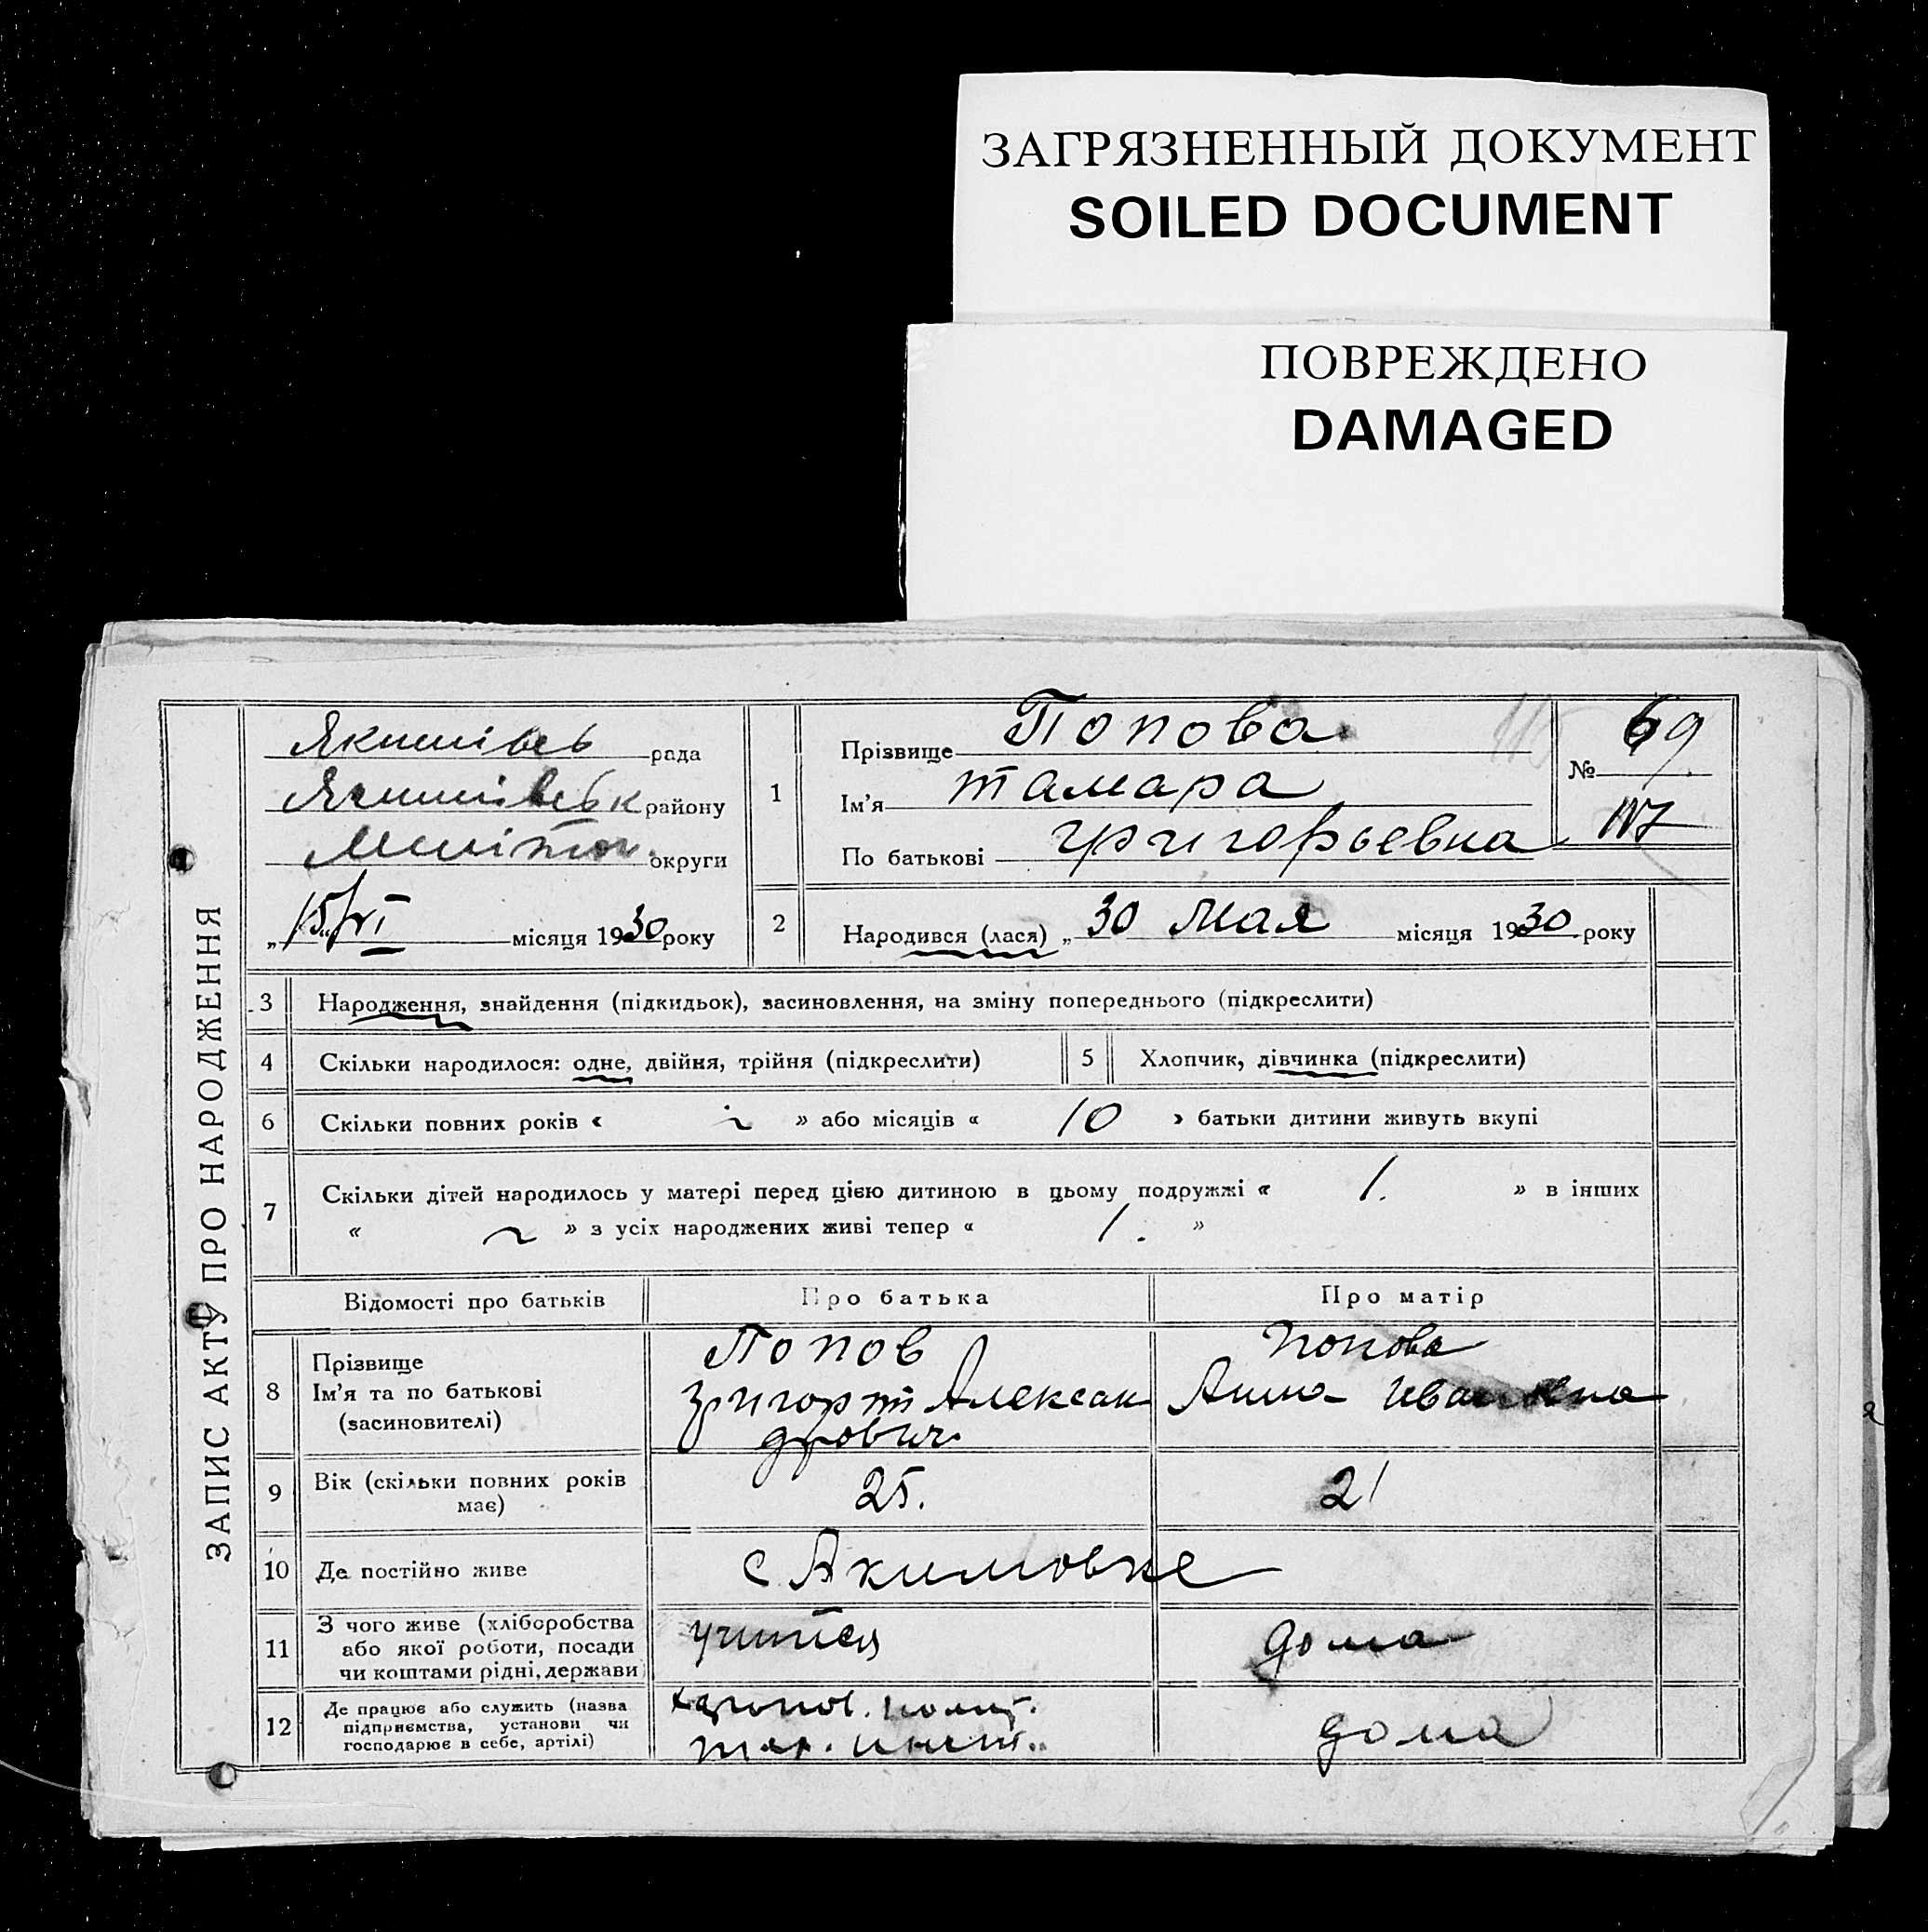 ЗАГРЯЗНЕННЫЙ ДОКУМЕНТ
SOILED DOCUMENT
ПОВРЕЖДЕНО
DAMAGED
ЗАПИС АКТУ ПРО НАРОДЖЕННЯ
рада
району
округи
„15/VI місяця 1930 року
1
Прізвище Попова
Ім'я тамара
По батькові григорьевна
№ 69
117
2
Народився (лася) „30 Мая місяця 1930 року
3 Народження, знайдення (підкидьок), засиновлення, на зміну попереднього (підкреслити)
4 Скільки народилося: одне, двійня, трійня (підкреслити)
5 Хлопчик, дівчинка (підкреслити)
6 Скільки повних років « ~ » або місяців « 10 » батьки дитини живуть вкупі
7 Скільки дітей народилось у матері перед цією дитиною в цьому подружжі « 1. » в інших
« ~ » з усіх народжених живі тепер « 1. »
Відомості про батьків
Про батька
Про матір
8 Прізвище
Ім'я та по батькові
(засиновителі)
Попов
Александрович
Попова
Анна Ивановна
9 Вік (скільки повних років
має)
25.
21
10 Де постійно живе
с Акимовке
11 З чого живе (хліборобства
або якої роботи, посади
чи коштами рідні, держави
учится
дома
12 Де працює або служить (назва
підприємства, установи чи
господарює в себе, артілі)
дома